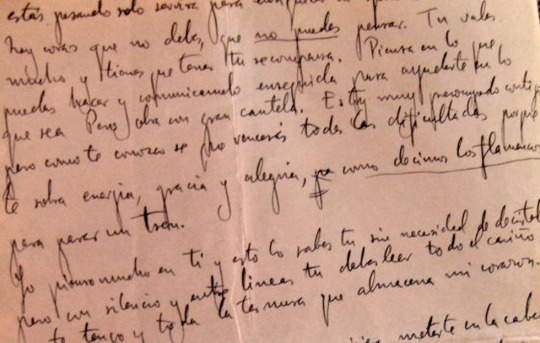 estás pasando solo servirá para
hay cosas que no debes, que no puedes pensar. Tu vales
mucho y tienes que tener tu recompensa. Piensa en lo que
puedas hacer y comunícamelo enseguida para ayudarte en lo
que sea. Pero obra con gran cautela. Estoy muy preocupado contigo
pero como te conozco se que vencerás todas las dificultades porque
te sobra energía, gracia y alegría, como decimos los flamencos
para parar un tren.
Yo pienso mucho en ti y esto lo sabes tu sin necesidad de decírtelo
pero con silencio y entre lineas tu debes leer todo el cariño
te tengo y toda la ternura que almacena mi corazón.
meterte en la cabe